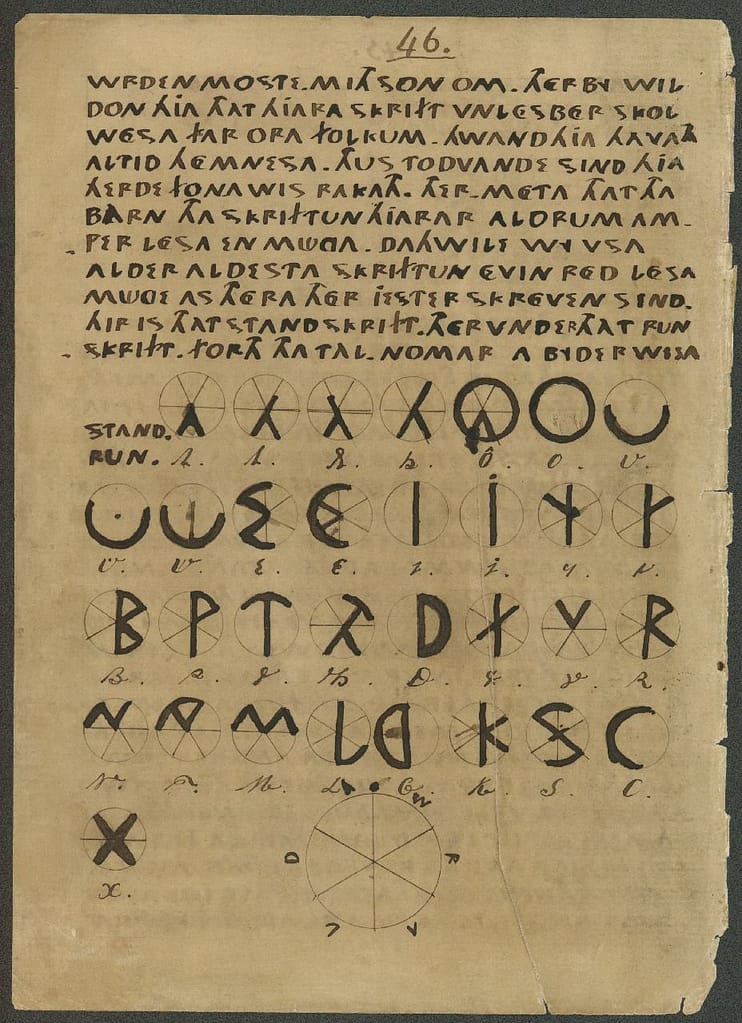 46.
WRDEN MOSTE. MITH SON OM. THER BY WIL
DON HIA THAT HIARA SKRIFT VNLESBER SKOL
WESA FAR ORA FOLKUM. HWAND HIA HAVATH
ALTID HEMNESA. THUS TODVANDE SIND HIA
HERDE FON A WIS RAKATH. THER-META THAT THA
BARN THA SKRIFTUN HIARAR ALDRUM AM-
PER LESA EN MUGA. DAHWILE WY VSA
ALDER ALDESTA SKRIFTUN EVIN RED LESA
MUGE AS THERA THER JESTER SKREVEN SIND.
HIR IS THAT STANDSKRIFT. THERVNDER THAT RUN
SKRIFT. FORTH THA TAL-NOMAR A BYDER WISA
STAND.
RUN.
B. P. T. TH. D. F. V. R.
K. S. C.
X.